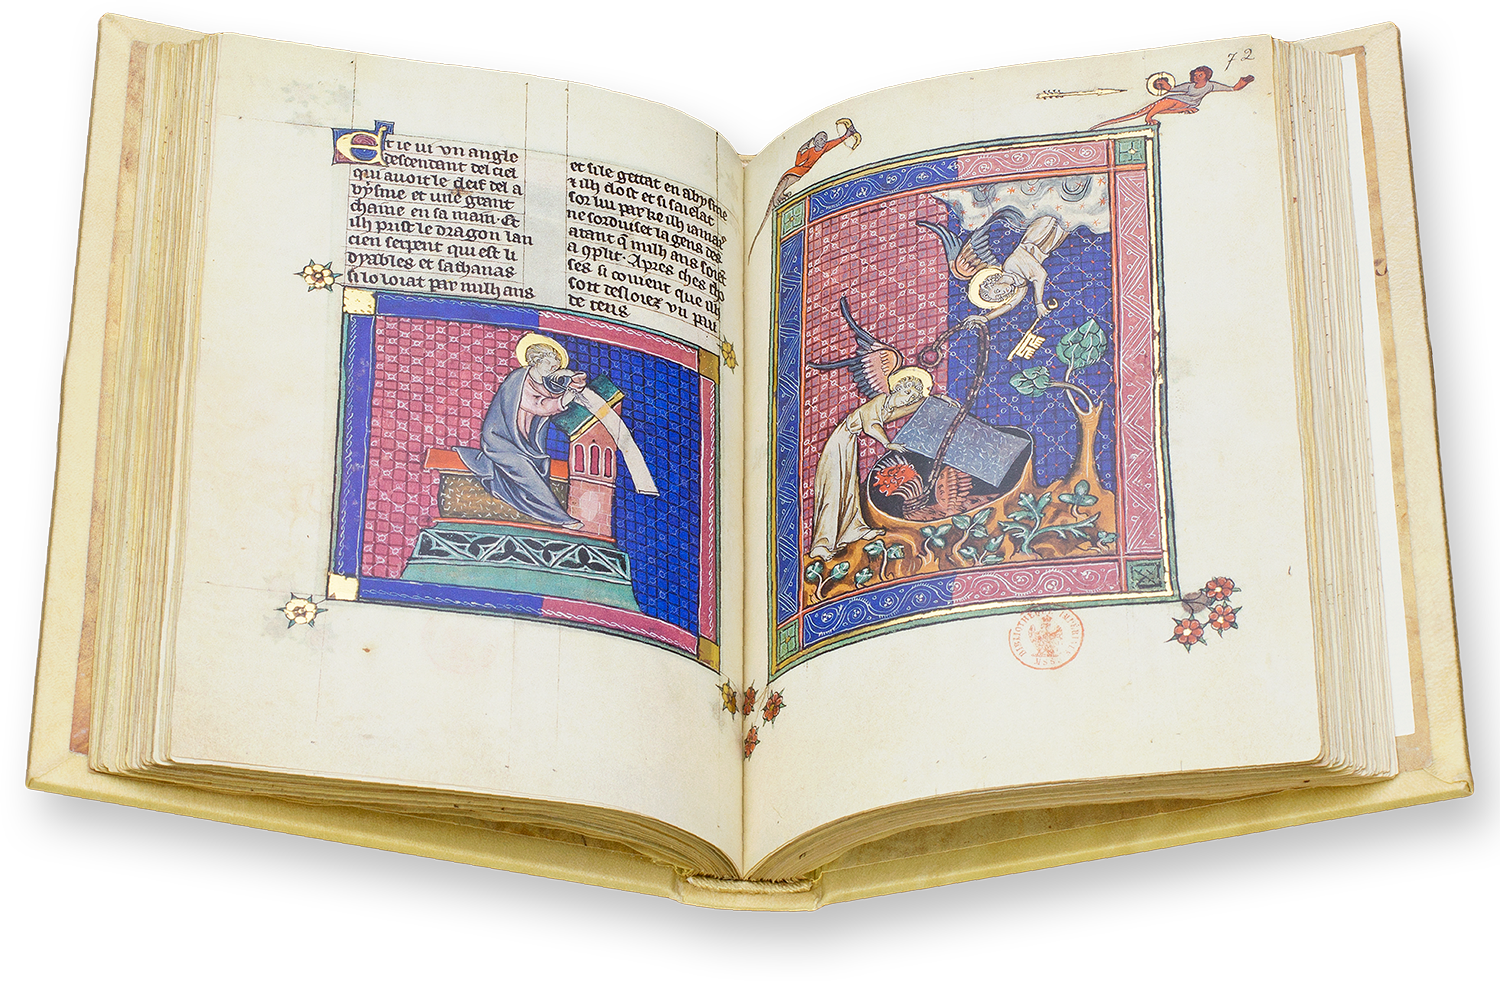 Et ie ui vn angle
descendant del ciel
qui auoit le clef del a
bysme et une grant
chaine en sa main · Et
ilh prist le dragon lan
cien serpent qui est li
dyables et sathanas
si lo loiat par milh ans
et si le gettat en abysme
⁊ ilh clost et si saielat
sor lui par ke ilh iamais
ne sorduiset la gens des
atant q̄ milh ans soient
a ꝯplit · Apres ches cho
ses si couient que ilh
soit desloiez vn pau
de tens
72
BIBLIOTHEQUE IMPERIALE
MSS.